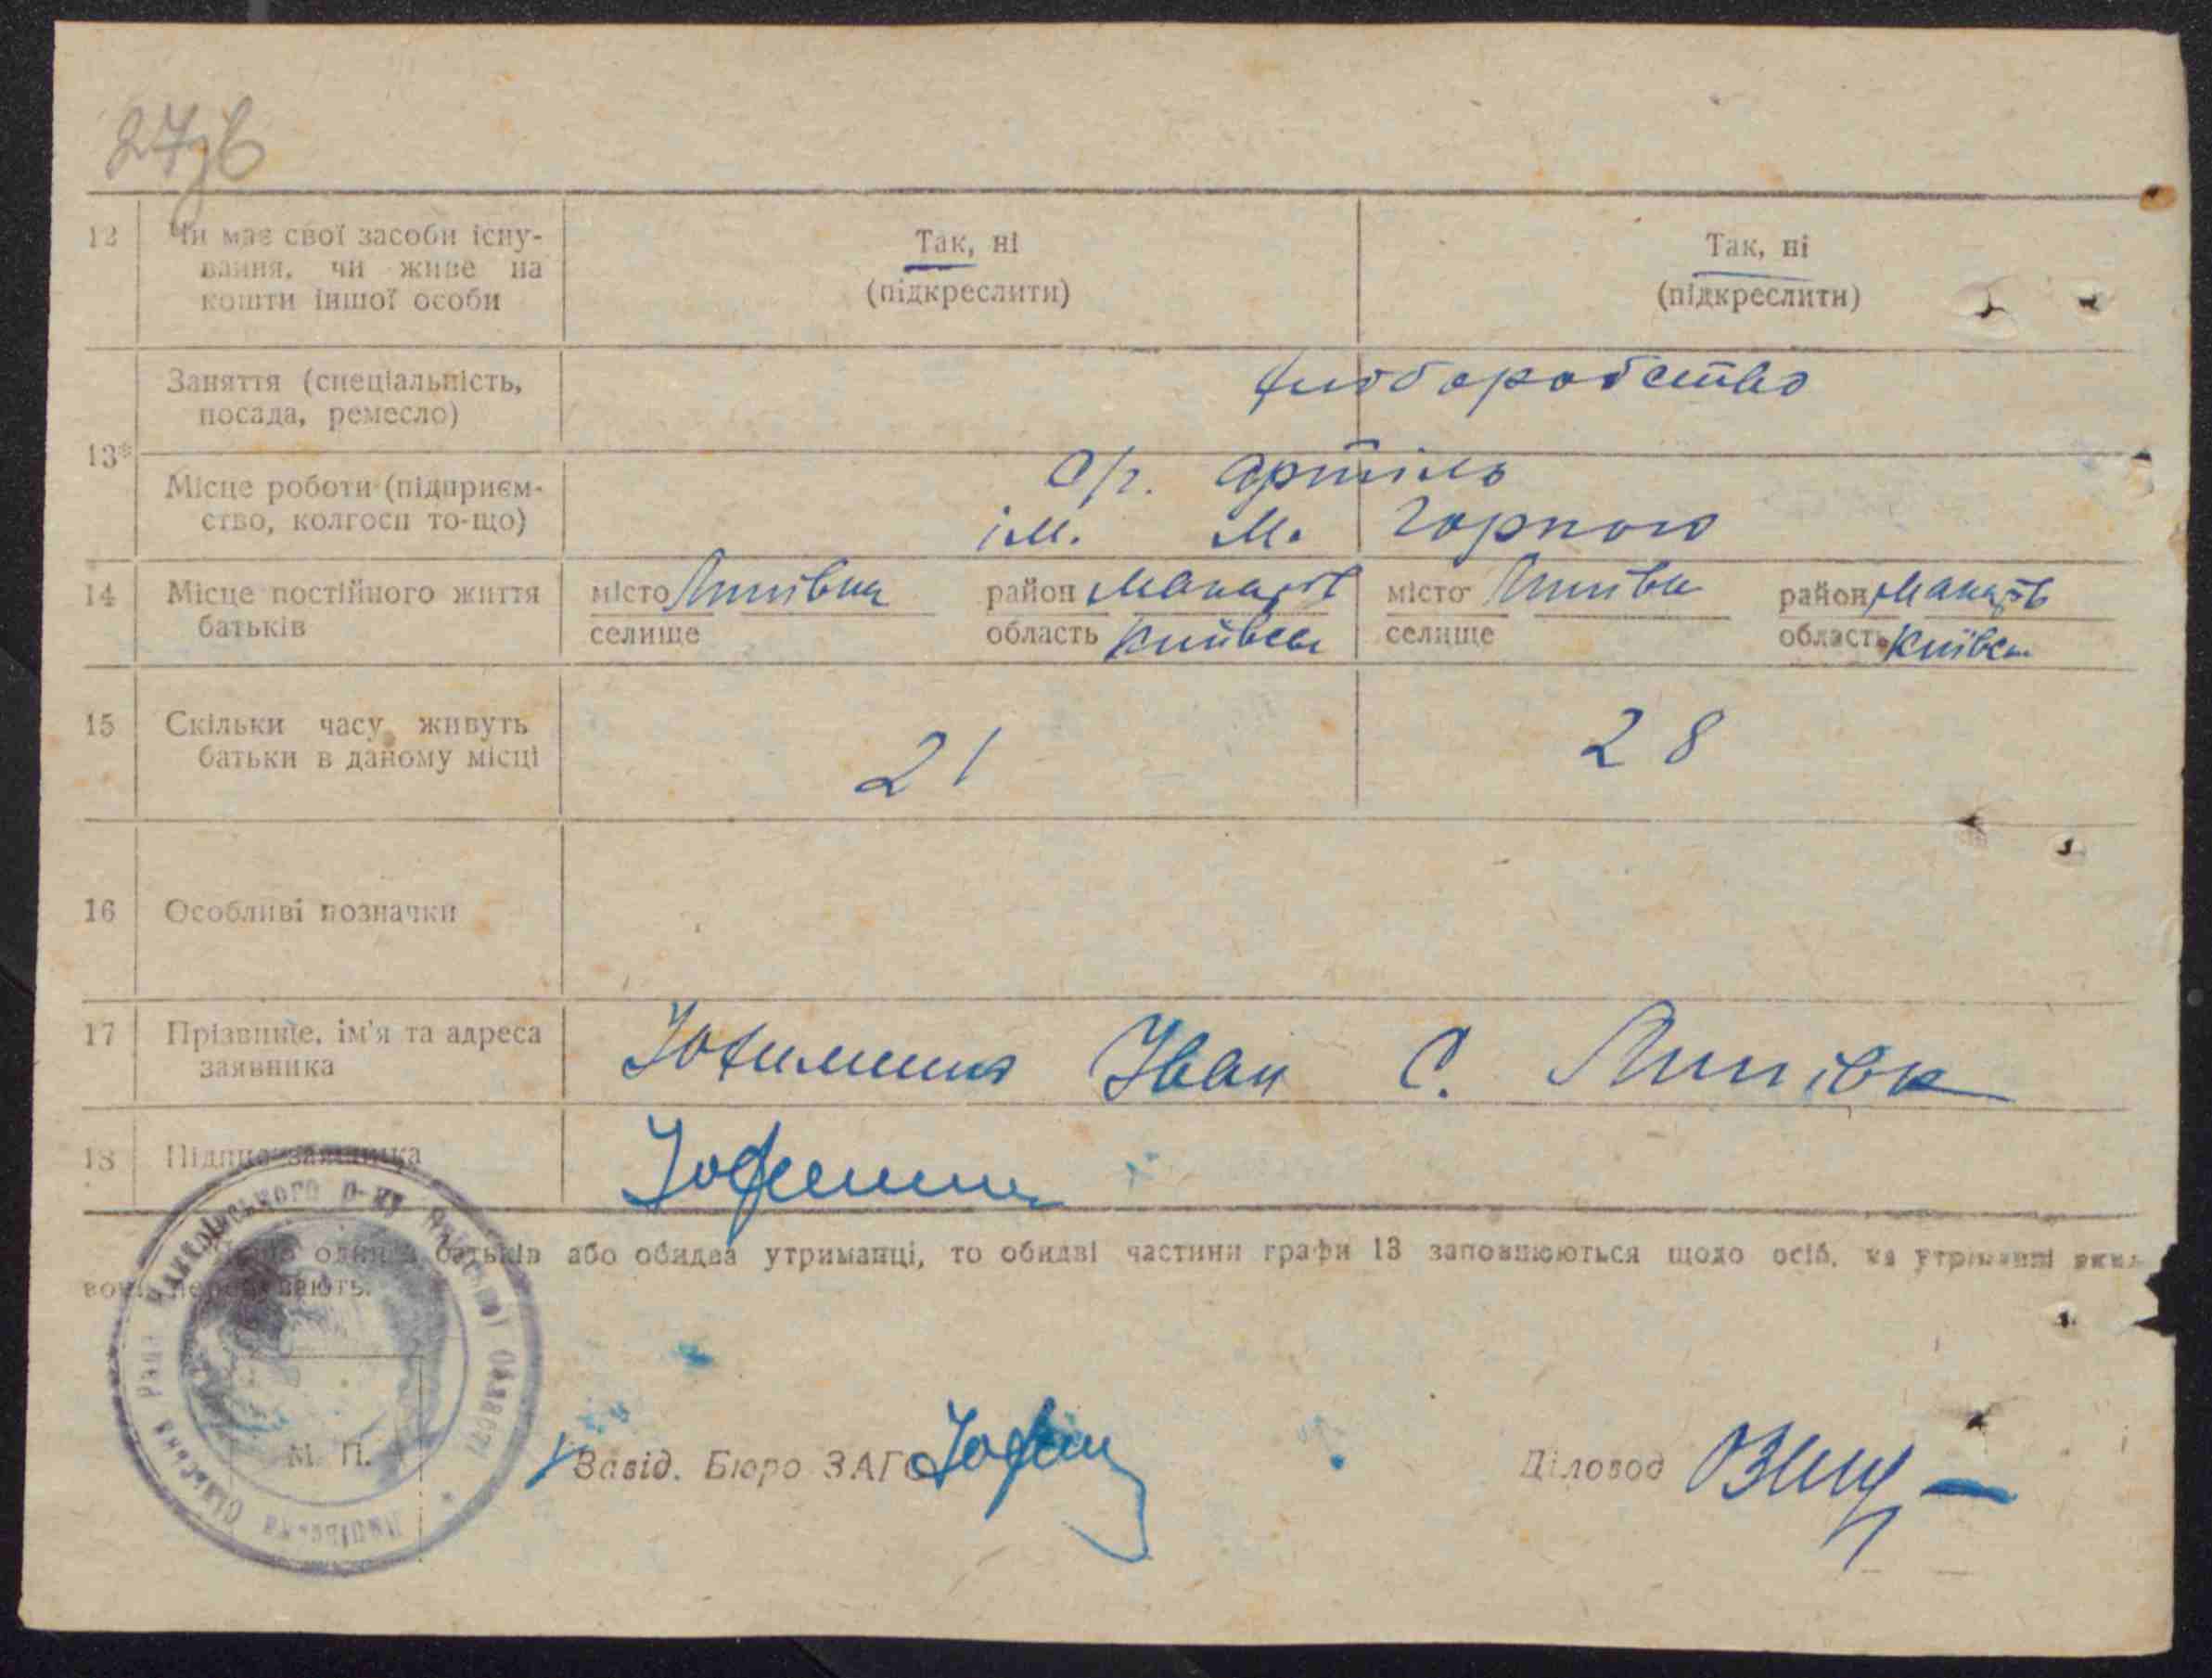 27зв
12 Чи має свої засоби існу-
вання, чи живе на
кошти іншої особи
Так, ні
(підкреслити)
Так, ні
(підкреслити)
13*
Заняття (спеціальність,
посада, ремесло)
хліборобство
Місце роботи (підприєм-
ство, колгосп то-що)
с/г. артіль
ім. М. Горького
14 Місце постійного життя
батьків
місто Липівка район Макарів
селище область Київськ
місто Липівка район Макарів
селище область Київськ
15 Скільки часу живуть
батьки в даному місці
21
28
16 Особливі позначки
17 Прізвище, ім'я та адреса
заявника
Іван С. Липівка
18 Підпис заявника
один з батьків або обидва утриманці, то обидві частини графи 13 заповнюються щодо осіб, на утриманні яких
вони перебувають.
М. П.
Завід. Бюро ЗАГС
Діловод
Липівська Сільська Рада Макарівського р-ну Київської області